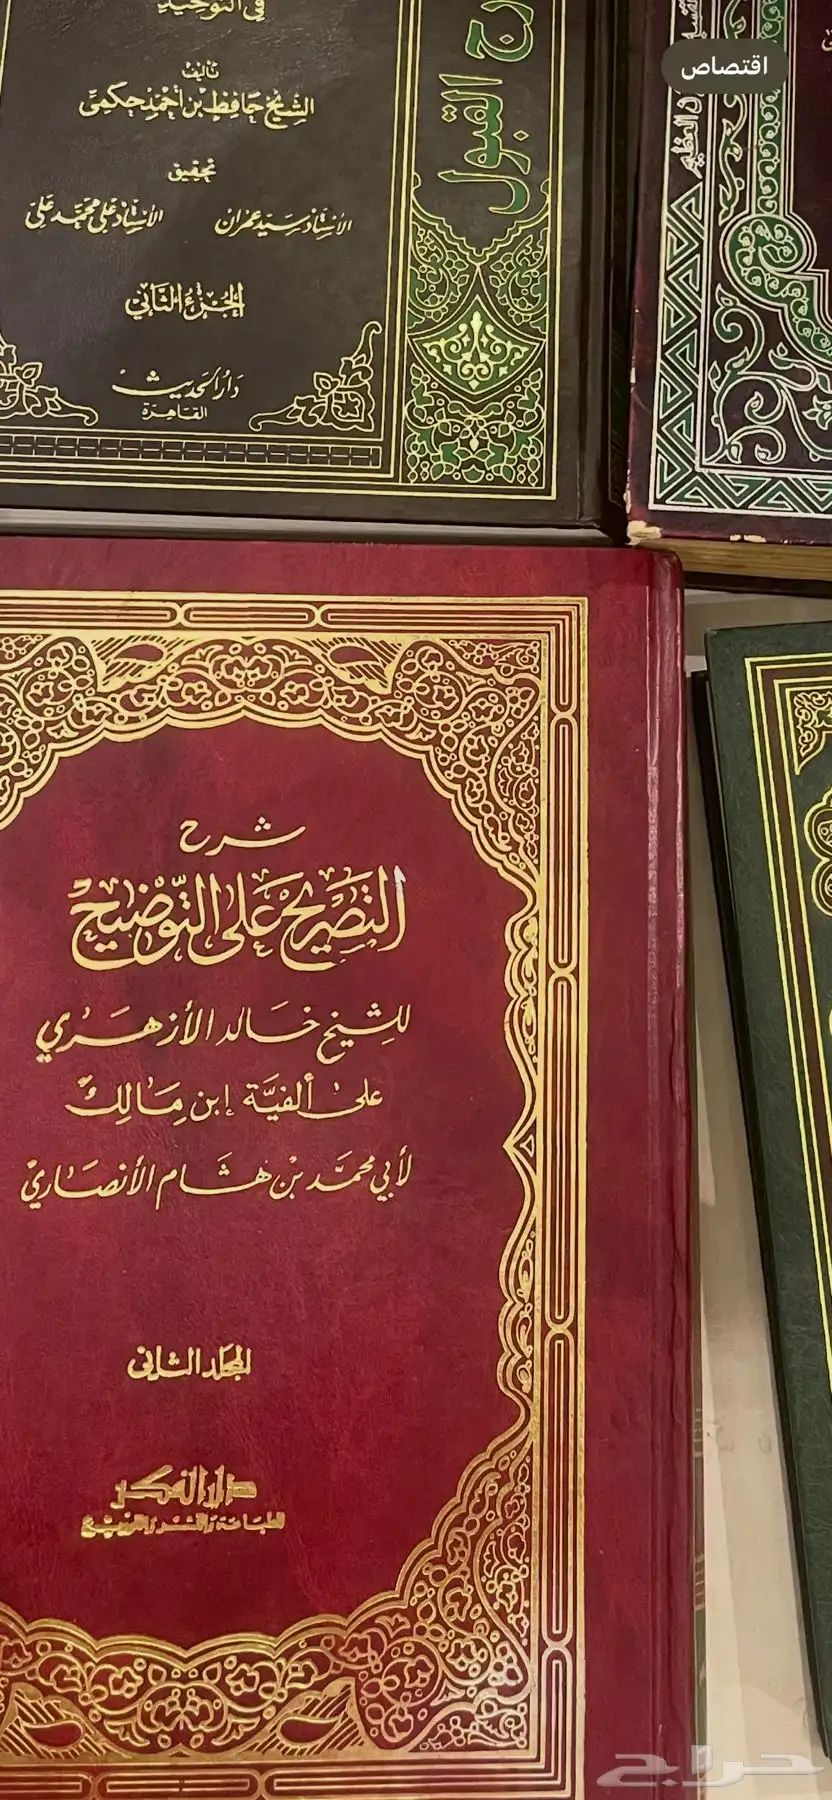 اقتصاص
في التوحيد
تأليف
الشيخ حافظ بن أحمد حكمي
تحقيق
الأستاذ سيد عمران الأستاذ علي محمد علي
الجزء الثاني
دار الحديث
القاهرة
القبول
شرح
التصريح على التوضيح
للشيخ خالد الأزهري
على ألفية إبن مالك
لأبي محمد بن هشام الأنصاري
المجلد الثاني
دار الفكر
للطباعة والنشر والتوزيع
حراج